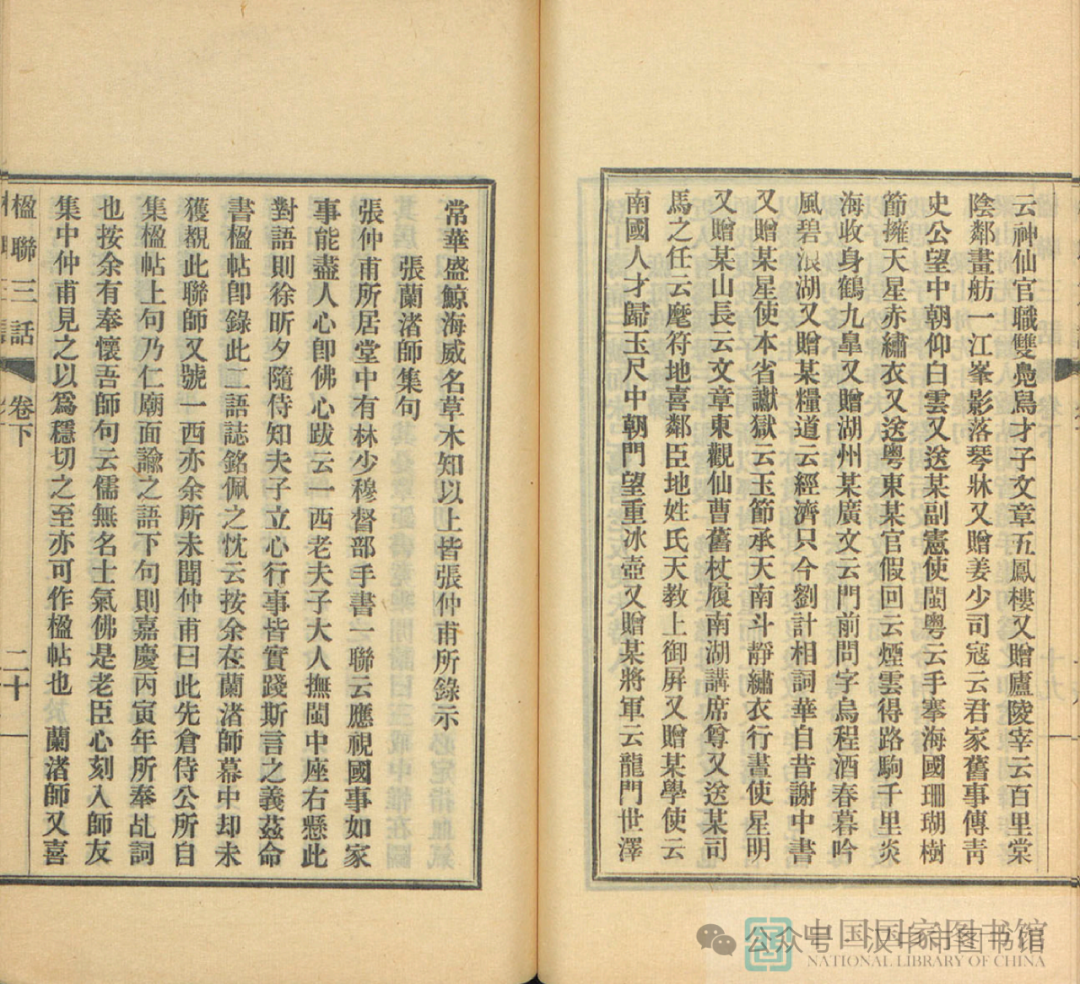 云神仙官職雙鳧舃才子文章五鳳樓又贈廬陵宰云百里棠
陰鄰畫舫一江峯影落琴牀又贈姜少司寇云君家舊事傳青
史公望中朝仰白雲又送某副憲使閩粵云手搴海國珊瑚樹
節擁天星赤繡衣又送粵東某官假回云煙雲得路駒千里炎
海收身鶴九皐又贈湖州某廣文云門前問字烏程酒春暮吟
風碧浪湖又贈某糧道云經濟只今劉計相詞華自昔謝中書
又贈某星使本省讞獄云玉節承天南斗靜繡衣行晝使星明
又贈某山長云文章東觀仙曹舊杖履南湖講席尊又送某司
馬之任云麾符地喜鄰臣地姓氏天教上御屏又贈某學使云
南國人才歸玉尺中朝門望重冰壺又贈某將軍云龍門世澤
常華盛鯨海威名草木知以上皆張仲甫所錄示
張蘭渚師集句
張仲甫所居堂中有林少穆督部手書一聯云應視國事如家
事能盡人心卽佛心跋云一西老夫子大人撫閩中座右懸此
對語則徐昕夕隨侍知夫子立心行事皆實踐斯言之義茲命
書楹帖卽錄此二語誌銘佩之忱云按余在蘭渚師幕中却未
獲覩此聯師又號一西亦余所未聞仲甫曰此先倉侍公所自
集楹帖上句乃仁廟面諭之語下句則嘉慶丙寅年所奉乩詞
也按余有奉懷吾師句云儒無名士氣佛是老臣心刻入師友
集中仲甫見之以爲穩切之至亦可作楹帖也 蘭渚師又喜
楹聯三話 卷下 二十一
中国国家图书馆
NATIONAL LIBRARY OF CHINA
公众号·汉中市图书馆